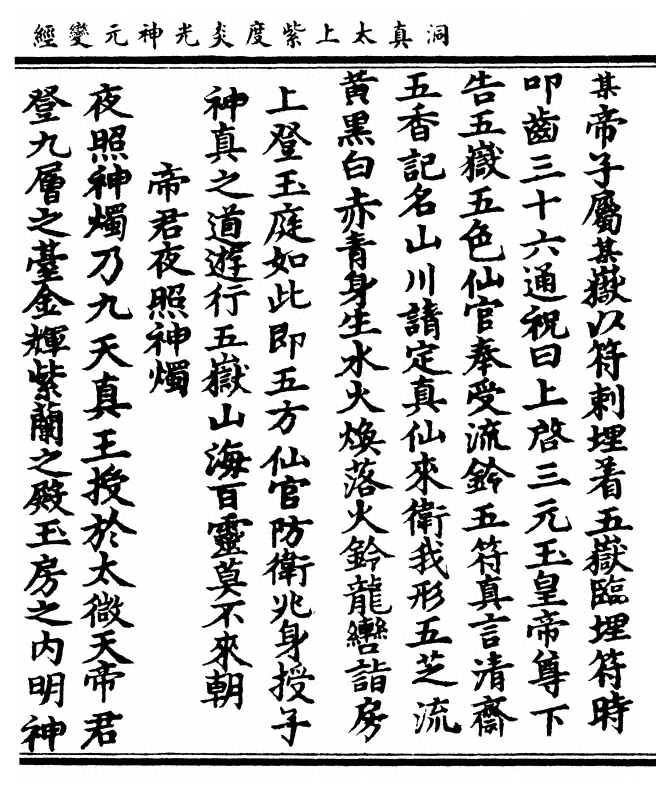 洞真太上紫度炎光神元變經
某帝子屬某嶽以符刺埋著五嶽臨埋符時
叩齒三十六通祝曰上啓三元玉皇帝尊下
告五嶽五色仙官奉受流鈴五符真言清齋
五香記名山川請定真仙來衛我形五芝流
黄黑白赤青身生水火煥落火鈴龍轡詣房
上登玉庭如此即五方仙官防衛兆身授子
神真之道遊行五嶽山海百靈莫不來朝
帝君夜照神燭
夜照神燭乃九天真王授於太微天帝君
登九層之臺金輝紫蘭之殿玉房之内明神